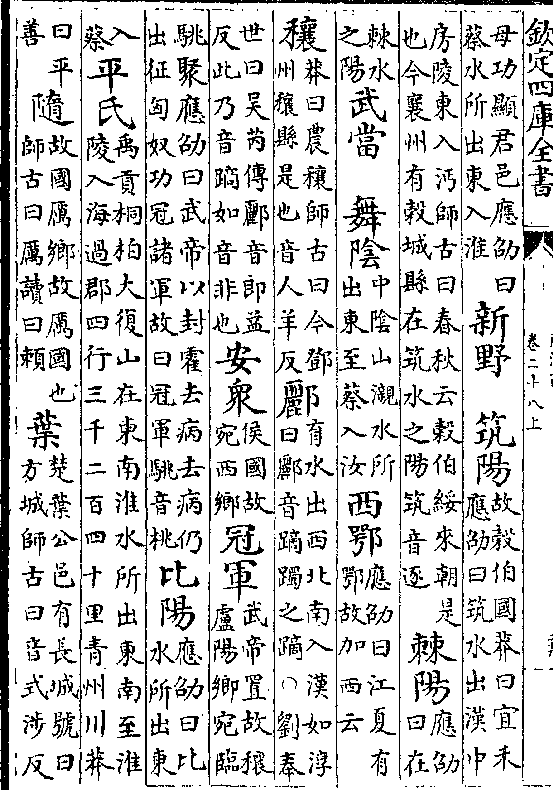 欽定四庫全書
卷二十八上
母功顯君邑應劭曰蔡水所出東入淮 新野 筑陽 故穀伯國莽曰宜禾應劭曰筑水出漢中
房陵東入沔師古曰春秋云穀伯綏來朝是也今襄州有穀城縣在筑水之陽筑音逐 棘陽 應劭曰在
棘水之陽 武當 舞陰 中陰山瀙水所出東至蔡入汝 西鄂 應劭曰江夏有鄂故加西云
穰 莽曰農穰師古曰今鄧州穰縣是也音人羊反 酈 有水出西北南入漢如淳曰酈音蹢躅之蹢○劉奉
世曰吴芮傳酈音即益反此乃音蹢如音非也 安衆 侯國故宛西鄉 冠軍 武帝置故穰盧陽鄉宛臨
駣聚應劭曰武帝以封霍去病去病仍出征匈奴功冠諸軍故曰冠軍駣音桃 比陽 應劭曰比水所出東
入蔡 平氏 禹貢桐柏大復山在東南淮水所出東南至淮陵入海過郡四行三千二百四十里青州川莽
曰平善 隨 故國厲鄉故厲國也師古曰厲讀曰賴 葉 楚葉公邑有長城號曰方城師古曰音式涉反